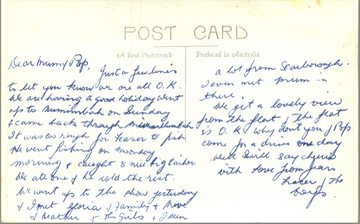 POST CARD
A Real Photograph
Produced in Australia
Dear Mum & Pop,
Just a few lines
to let you know we are all O.K.
We are having a good holiday went
up to on Sunday
& came back through
It was rough for
He went fishing on Monday
morning & caught 8
We ate one & he sold the rest.
We went up to the show yesterday
& I met Gloria & family &
& Heather & the Girls & I even
a lot from Scarborough.
I even met Mum in
there.
We get a lovely view
from the flat & the flat
is O.K. why don't you & Pop
come for a drive one day
Well I will say cheerio
with love from
& the
boys.